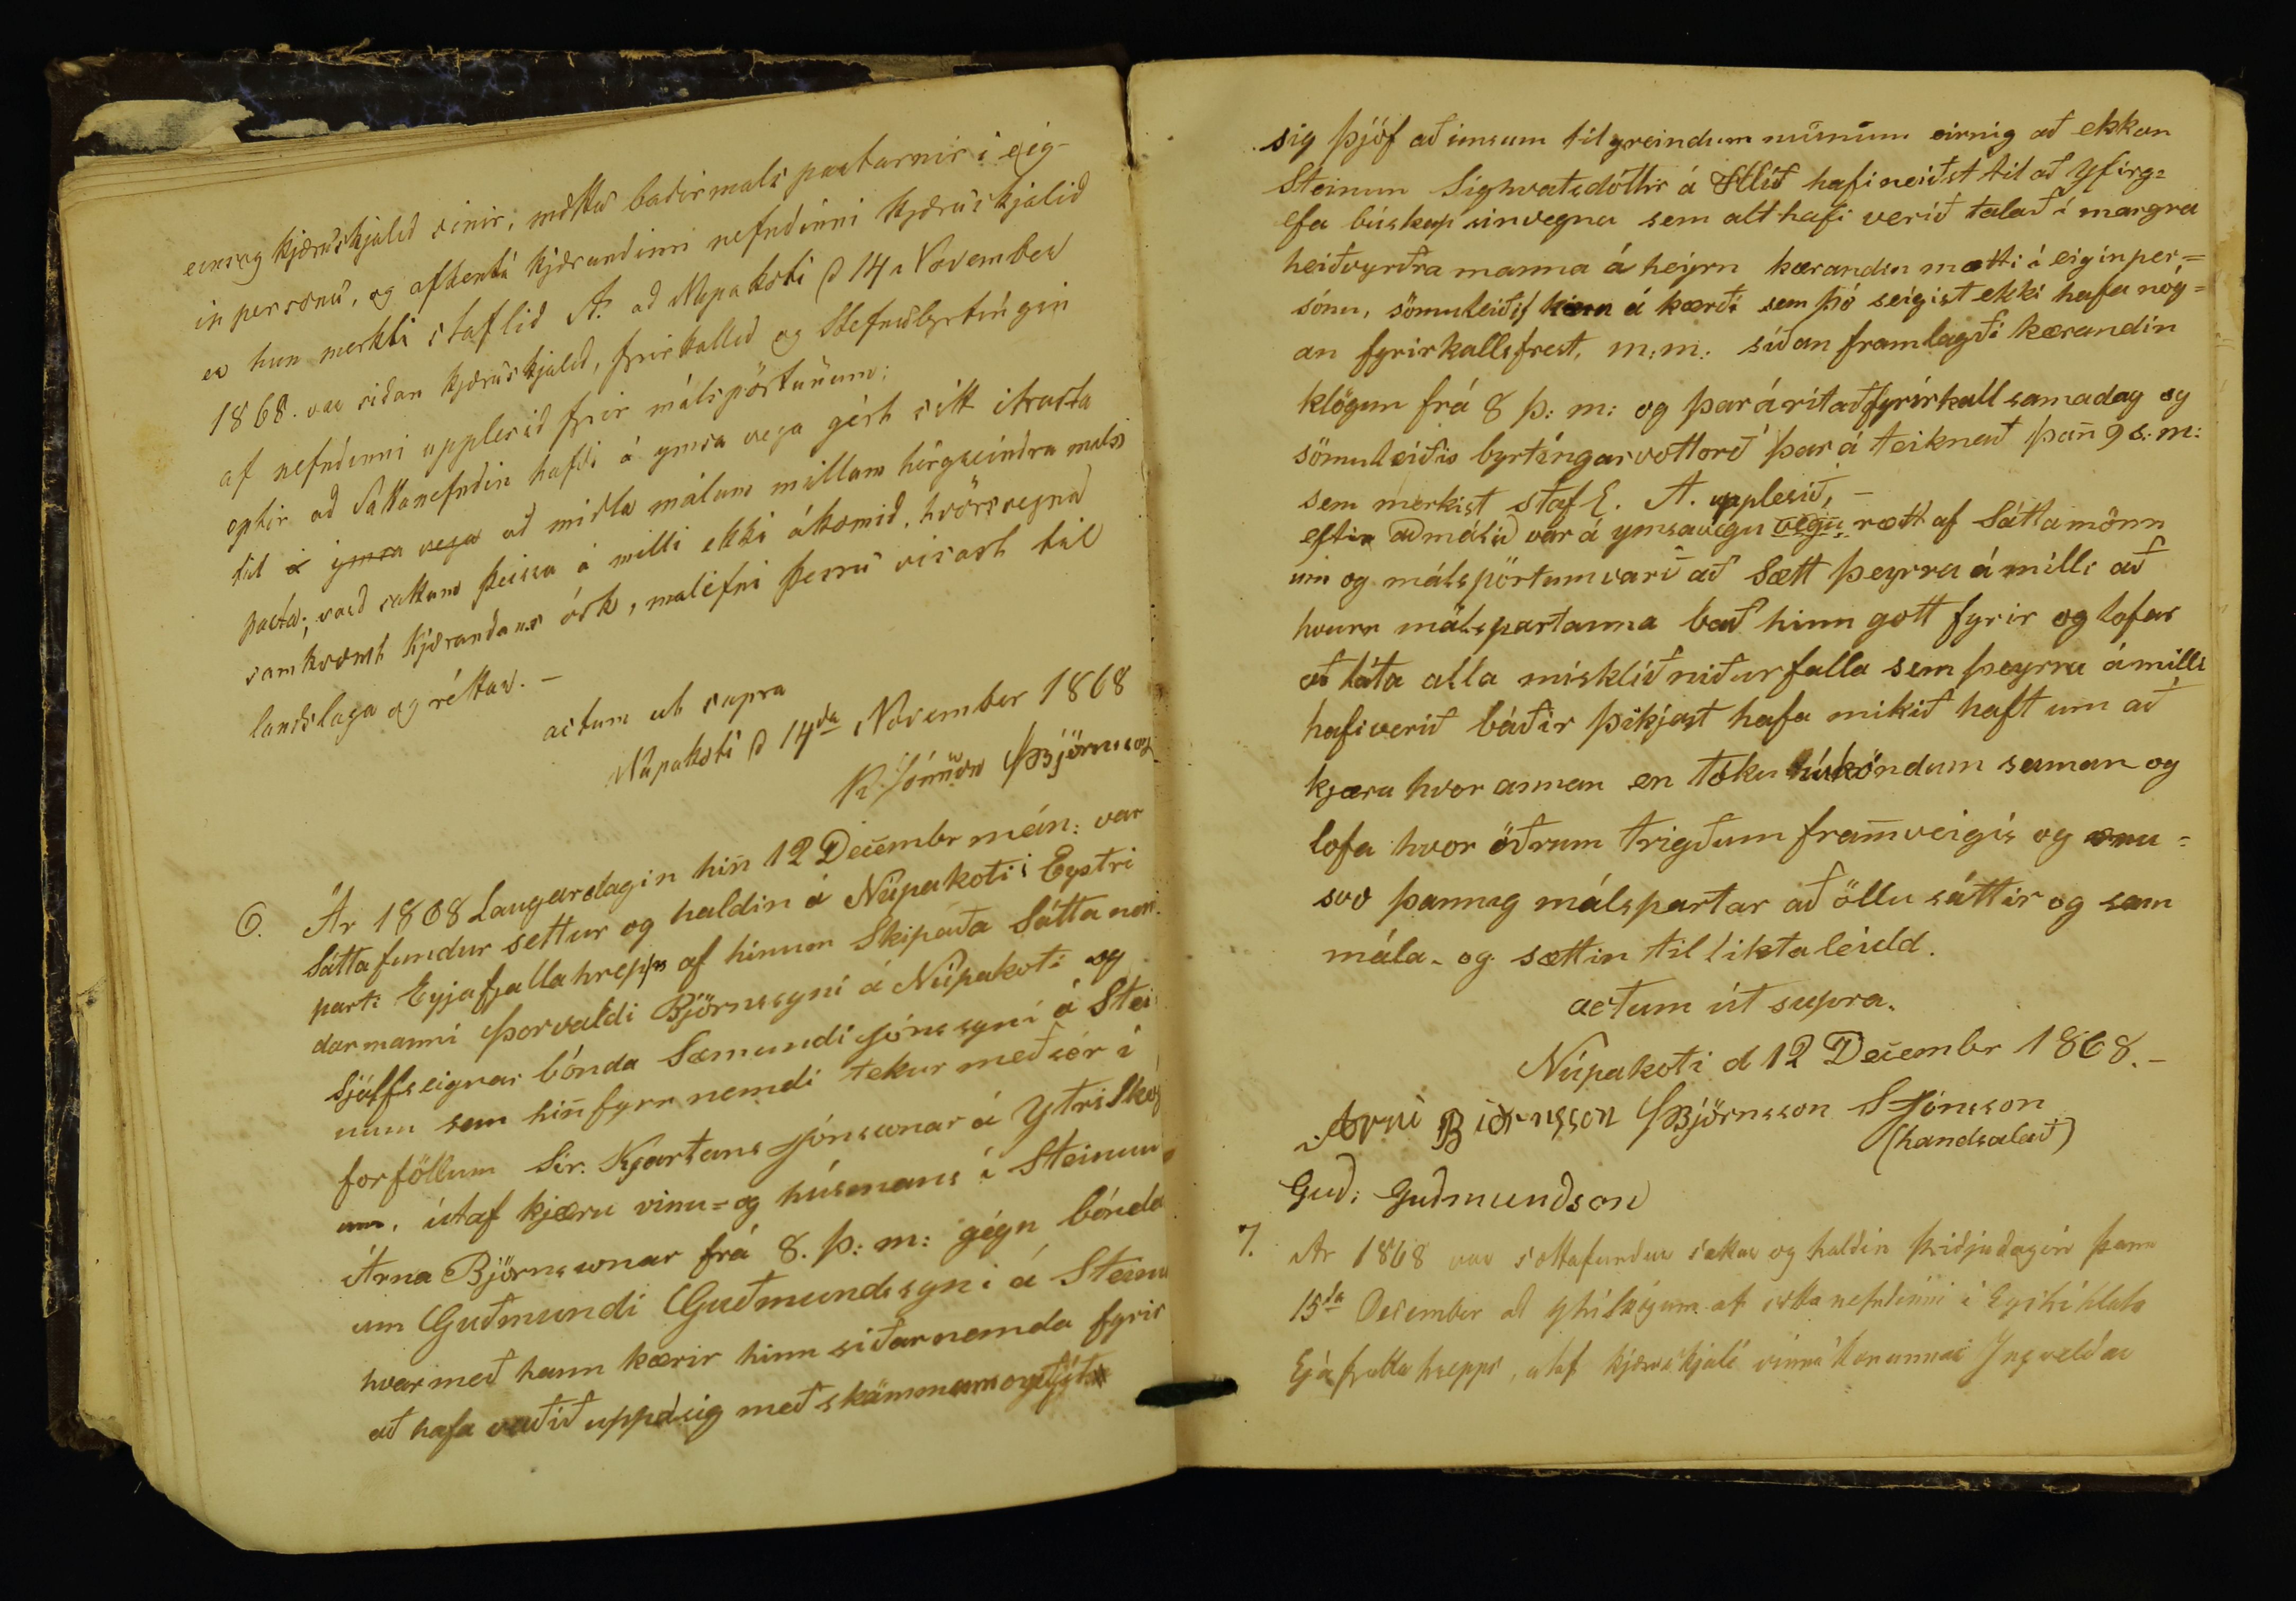 eins og kjæruskjalid sínir, mættu badir mals partarnir i eig-
in persónu, og afhenti kjærandinn nefndinni kjæruskjalid
er hun merkti staflid A. ad Núpakoti d 14a November
1868. var sidan kjæruskjalid, firirkallid og Stefnubyrtíngin
af nefndinni upplesid firir málspörtunum;
eptir ad Sattanefndin hafdi á ymsa vega gért sitt itrasta
til á ymsa vega ad midla málum millum hérgreindra mals
parta; vard sattum þeirra á milli ekki ákomid, hvörsvegna
samkvæmt kjærandans ósk, malefni þessu visast til
landslaga og réttar. -
actum ut supra
Núpakoti d 14da November 1868
K. Jónsson ÞBjörnsson
6. Ár 1868 Laugardagin hin̄ 12 Decembr méin: var
Sáttafundur settur og haldin á Núpakoti i Eystri
parti Eyjafjallahrepps af hinum Skipaða Sátta nem
darmanni Þorvaldi Björnssyni á Núpakoti og
Sjálfseignar bónda Sæmundi Jónssyni á Stei
num sem hin̄ fyrr nemdi tekur með sér í
forföllum Sir. Kjartans Jónssonar á Ytriskóg
um, útaf kjæru vinu= og húsmans í Steinum
Árna Björnssonar frá 8. þ: m: gégn bónda
um Guðmundi Guðmundssyni á Steinum
hvarmeð hann kærir hinn siðarnemda fyrir
at hafa vaðið uppásig með skömmum og
sig þjóf að imsum tilgreindum munum eirnig að ekkan
Steinun Sighvatsdóttir á Hlíð hafi neiðst til að Yfirg=
efa búskap sinvegna sem alt hafi verið talað í margra
heiðvyrðra manna á heyrn kærandin mætti i eigin per=
sónu, sömuleiðis hinn á kærði sem þó seigist ekki hafa nóg=
an fyrirkallsfrest, m:m: síðan framlagði kærandin
klögun frá 8 þ: m: og þar áritað fyrirkall samadag og
sömuleiðis byrtíngarvottorð þar á teiknað þan̄ 9 s: m:
sem merkist staf. A. upplesið, -
eftir að málið var á ymsavegu vegu rætt af Sáttamönn
um og málspörtum varð að Sætt þeyrra á milli að
hvurr málspartanna bað hinn gott fyrir og lofar
at láta alla misklíð niðurfalla sem þeyrra ámilli
hafi verið báðir þikjast hafa mikið haft um að
kjæra hvor annan en tóku höndum saman og
lofa hvor öðrum trigðum fram̄veigis og
svo þannig málspartar að öllu sáttir og sam
mála - og sættin til likta leidd.
actum út supra.
Núpakoti d 12 Decembr 1868. -
Arni Biörnsson ÞBjörnsson SJónsson
(handsalað)
Guð: Guðmundson
7. Ar 1868 var sáttafundur settur og haldin þridjudagin þann
15da December ad Ytriskógum af sattanefndinni i Eystrihluta
Eyafjalla hrepps, utaf kjæruskjali vinnukonunnar Ingveldar